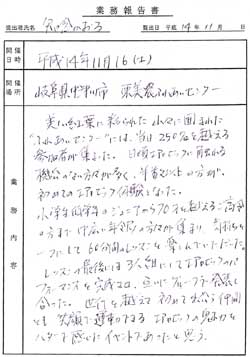 業務報告書
提出者氏名
提出日 平成14年11月
開催日時 平成14年11月16(土)
開催場所 岐阜県中津川市 東美濃ふれあいセンター
業務内容
美しい紅葉に彩られた山々に囲まれた
"ふれあいセンター"には、当日250名を越える
参加者が集まった。日頃エアロビックに触れる
機会のない方々が多く、半数以上の方が、
初めてのエアロビック体験となった。
小学生低学年のジュニアから70才を越えるご高齢
の方まで 幅広い年令層の方々が集まり、気持ちを
一つにして60分間のレッスンを楽しんでいただいた。
レッスンの最後には3人組にしてエアロビックの
パフォーマンスを完成させ、互いにグループで発表し
合った。世代を越えて初めて出会う仲間
とも笑顔で運動できるエアロビックの魅力を
肌で感じたイベントであったと思う。